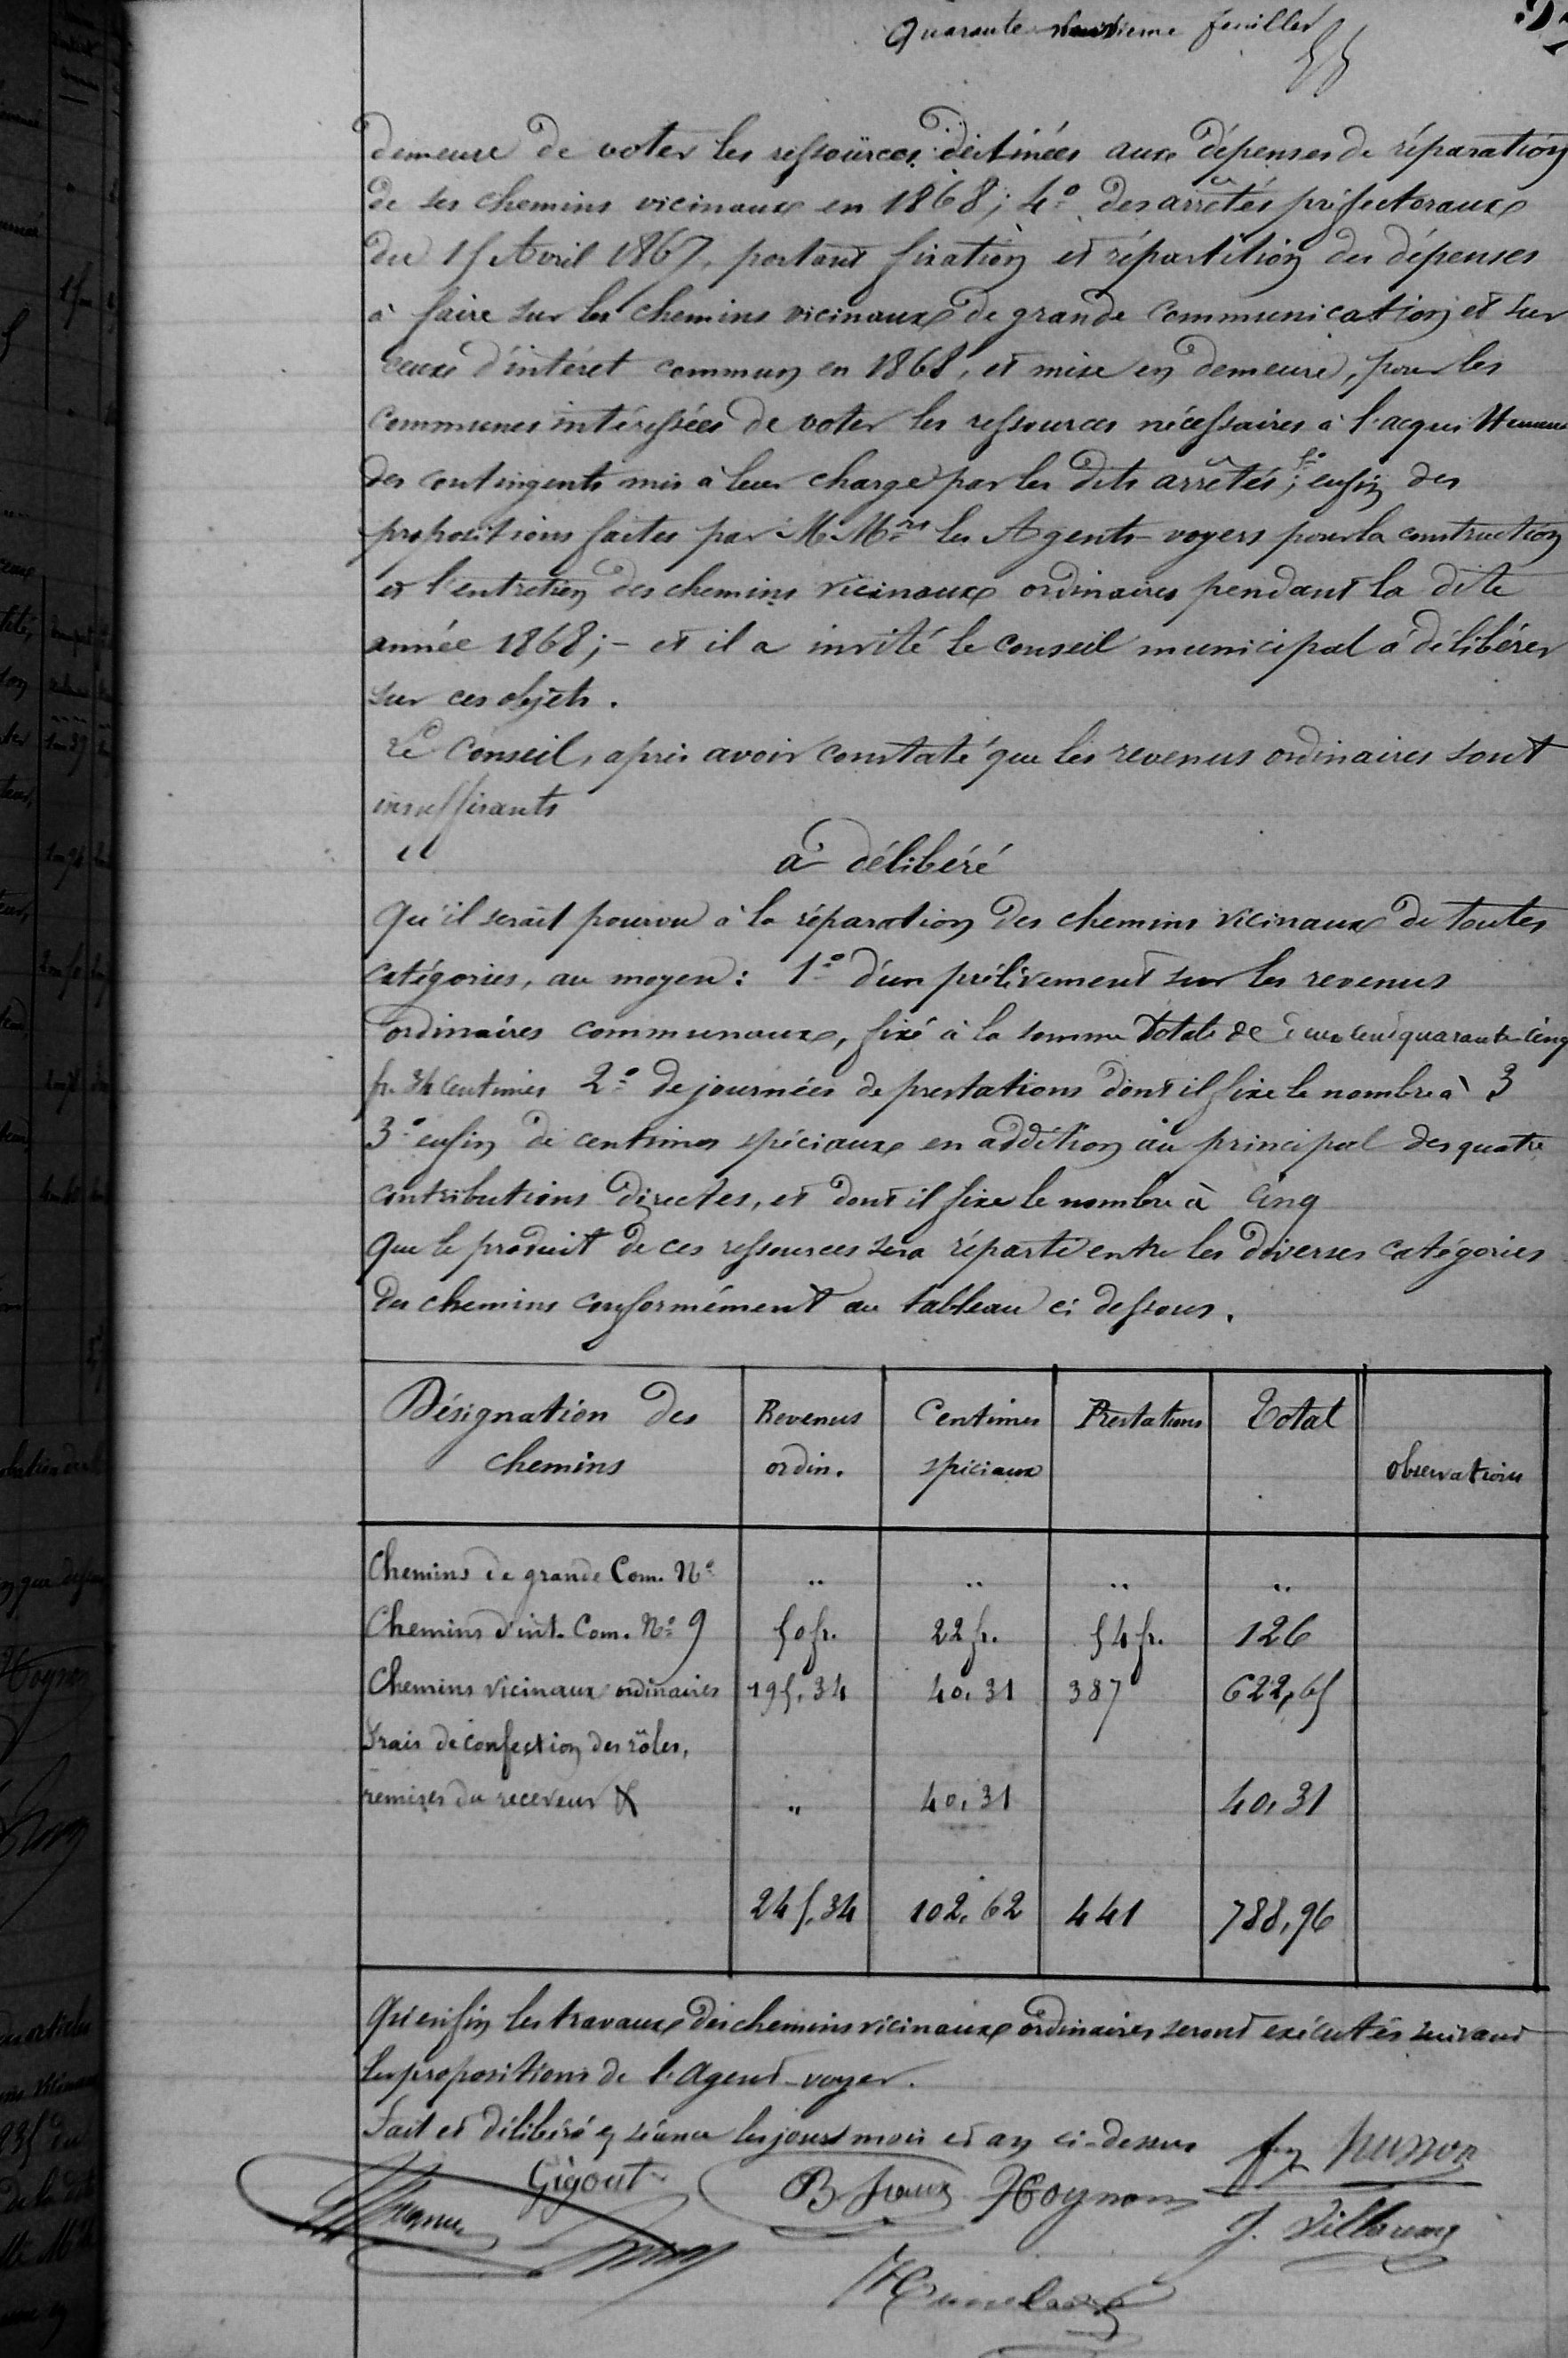 Quarante feuillet
demeure de voter les ressources destinées aux dépenses de réparation
de ses chemins vicinaux en 1868; 4° des arrêtés préfectoraux
du 15 Avril 1867, portant fixation et répartition des dépenses
à faire sur les chemins vicinaux de grande communication et sur
ceux d'intéret commun en 1868, et mise en demeure, pour les
communes intéressées de voter les ressources nécessaires à l'acquittement
des contingents mis à leur charge par les dits arrêtés; 5° enfin des
propositions faites par M.Mrs les Agents-voyers pour la construction
et l'entretien des chemins vicinaux ordinaires pendant la dite
année 1868; - et il a invité le conseil municipal à délibérer
sur ces objets.
Le Conseil, après avoir constaté que les revenus ordinaires sont
insuffisants
a délibéré
Qu'il serait pourvu à la réparation des chemins vicinaux de toutes
catégories, au moyen: 1° d'un prélèvement sur les revenus
ordinaires communaux, fixé à la somme totale de deux cent quarante cinq
fr. 34 centimes 2° de journées de prestations dont il fixe le nombre à 3
3° enfin de centimes spéciaux en addition au principal des quatre
contributions directes, et dont il fixe le nombre à cinq
Que le produit de ces ressources sera réparti entre les diverses catégories
des chemins conformément au tableau ci dessous.
Désignation des chemins Revenus ordin. Centimes spéciaux Prestations Total observations
Chemins de grande Com. N° " " " "
Chemins d'int. Com. N° 9 50 fr. 22 fr. 54 fr. 126
Chemins vicinaux ordinaires 195,34 40,31 387 622,65
Frais de confection des rôles,
remises du receveur & " 40,31 40,31
245,34 102,62 441 788,96
Qu'enfin les travaux des chemins vicinaux ordinaires seront exécutés suivant
les propositions de l'Agent-voyer.
Fait et délibéré en séance les jours mois et an ci-dessus
Gigout Hoynon husson
J. Villaume